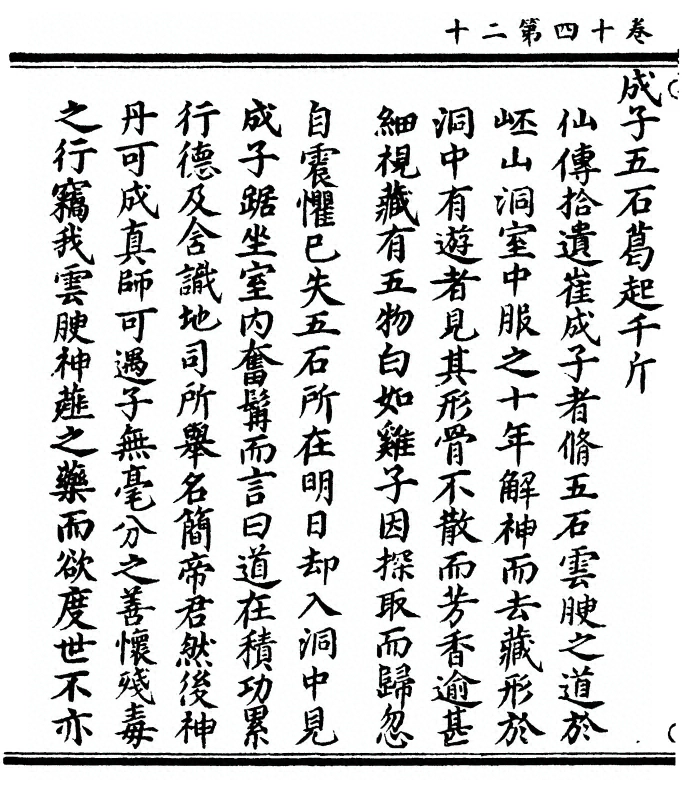 卷十四第二十
成子五石葛起千斤
仙傳拾遺崔成子者脩五石雲腴之道於
岯山洞室中服之十年解神而去藏形於
洞中有遊者見其形骨不散而芳香逾甚
細視藏有五物白如雞子因探取而歸忽
自震懼已失五石所在明日却入洞中見
成子踞坐室内奮髯而言曰道在積功累
行德及含識地司所舉名簡帝君然後神
丹可成真師可遇子無毫分之善懷殘毒
之行竊我雲腴神蓶之藥而欲度世不亦